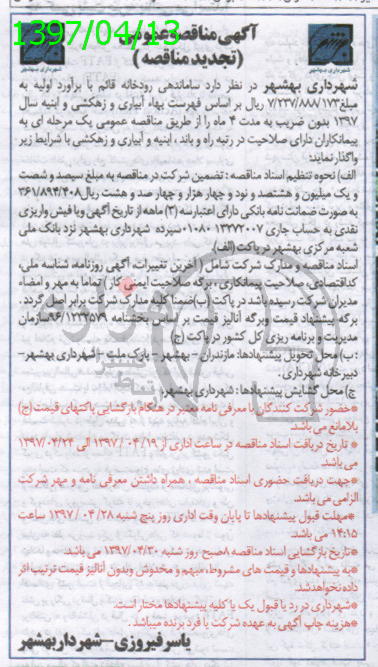 1397/04/13
آگهی مناقصه عمومی
(تجدید مناقصه)
شهرداری بهشهر
شهرداری بهشهر در نظر دارد ساماندهی رودخانه قائم با برآورد اولیه به
مبلغ ۷/۲۳۷/۸۸۸/۱۷۳ ریال بر اساس فهرست بهاء آبیاری و زهکشی و ابنیه سال
۱۳۹۷ بدون ضریب به مدت ۴ ماه را از طریق مناقصه عمومی یک مرحله ای به
پیمانکاران دارای صلاحیت در رتبه راه و باند ، ابنیه و آبیاری و زهکشی با شرایط زیر
واگذار نمایند:
الف) نحوه تنظیم اسناد مناقصه : تضمین شرکت در مناقصه به مبلغ سیصد و شصت
و یک میلیون و هشتصد و نود و چهار هزار و چهار صد و هشت ریال ۳۶۱/۸۹۴/۴۰۸
به صورت ضمانت نامه بانکی دارای اعتبار سه (۳) ماهه از تاریخ آگهی ویا فیش واریزی
نقدی به حساب جاری ۰۱۰۸۰۱۳۳۷۳۰۰۷ سپرده شهرداری بهشهر نزد بانک ملی
شعبه مرکزی بهشهر در پاکت (الف).
اسناد مناقصه و مدارک شرکت شامل ( آخرین تغییرات، آگهی روزنامه، شناسه ملی،
کداقتصادی، صلاحیت پیمانکاری ، برگه صلاحیت ایمنی کار ) تماما به مهر و امضاء
مدیران شرکت رسیده باشد در پاکت (ب)ضمنا کلیه مدارک شرکت برابر اصل گردد .
برگه پیشنهاد قیمت وبرگه آنالیز قیمت بر اساس بخشنامه ۹۶/۱۲۳۲۵۷۹ سازمان
مدیریت و برنامه ریزی کل کشور در پاکت (ج)
: ب) محل تحویل پیشنهادها: مازندران – بهشهر – پارک ملت – شهرداری بهشهر–
دبیرخانه شهرداری.
ج) محل گشایش پیشنهادها : شهرداری بهشهر
*حضور شرکت کنندگان با معرفی نامه معتبر در هنگام بازگشایی پاکتهای قیمت (ج)
بلامانع می باشد.
* تاریخ دریافت اسناد مناقصه در ساعت اداری از ۱۳۹۷/۰۴/۱۹ الی ۱۳۹۷/۰۴/۲۴
می باشد.
*جهت دریافت حضوری اسناد مناقصه ، همراه داشتن معرفی نامه و مهر شرکت
الزامی می باشد.
*مهلت قبول پیشنهادها تا پایان وقت اداری روز پنج شنبه ۱۳۹۷/۰۴/۲۸ ساعت
۱۴:۱۵ می باشد.
*تاریخ بازگشایی اسناد مناقصه ۸صبح روز شنبه ۱۳۹۷/۰۴/۳۰ می باشد.
*به پیشنهادها و قیمت های مشروط، مبهم و مخدوش وبدون آنالیز قیمت ترتیب اثر
داده نخواهد شد.
*شهرداری در رد یا قبول یک یا کلیه پیشنهادها مختار است.
*هزینه چاپ آگهی به عهده شرکت یا فرد برنده میباشد.
یاسر فیروزی – شهردار بهشهر